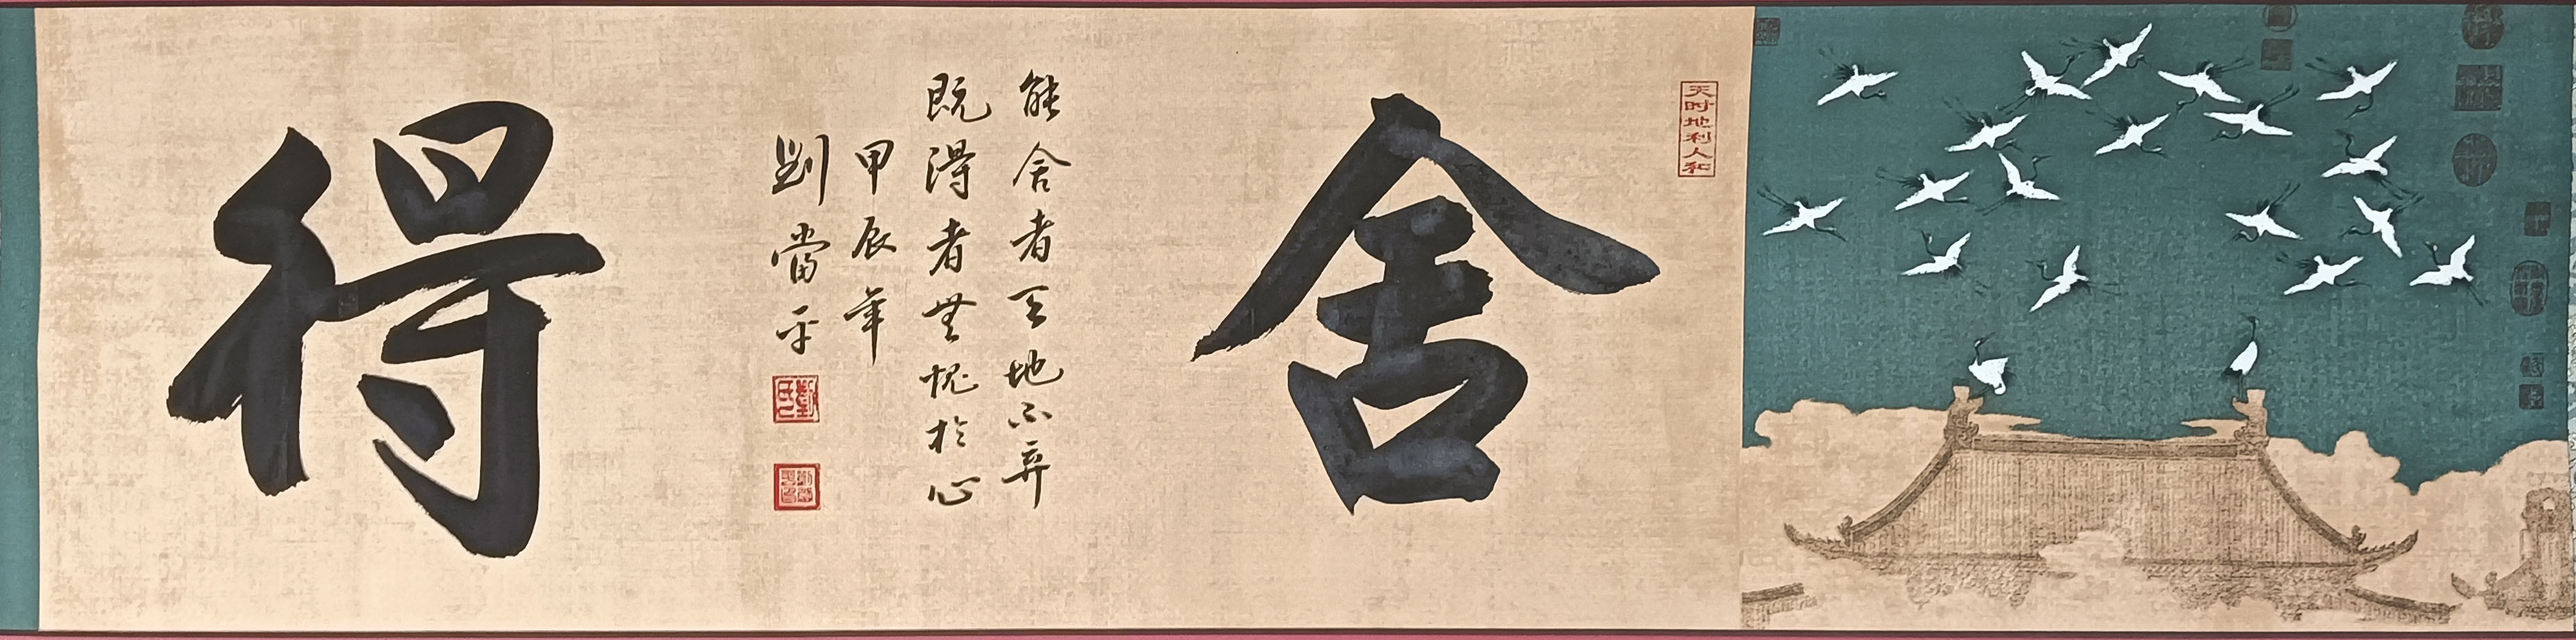 天时地利人和
舍
能舍者天地不弃
既得者無愧於心
甲辰年
劉當平
得